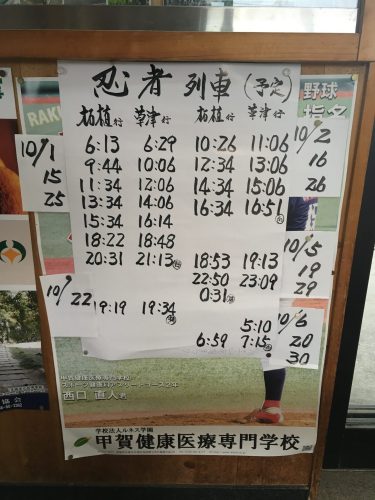 忍者 列車 (予定)
柘植行 草津行 柘植行 草津行
6:13 6:29 10:26 11:06
9:44 10:06 12:34 13:06
11:34 12:06 14:34 15:06
13:34 14:06 16:34 16:51
15:34 16:14
18:22 18:48
20:31 21:13
18:53 19:13
22:50 23:09
0:31
19:19 19:34
5:10
6:59 7:15
10/1
15
25
10/22
10/2
16
26
10/5
19
29
10/6
20
30
野球
RAKU
甲賀健康医療専門学校
西口 直人君
学校法人ルネス学園
甲賀健康医療専門学校
協会